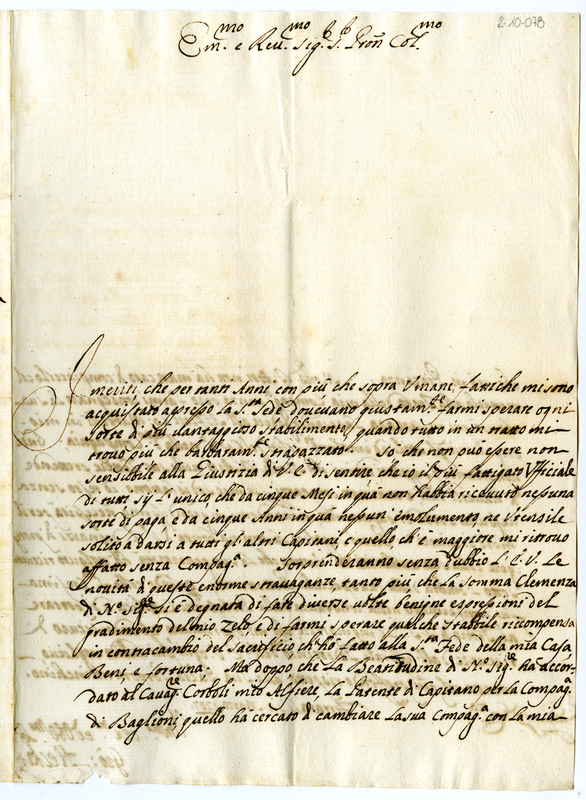 2-10-078
Em.mo e Reu.mo Sig.r P.ron Col.mo
I meriti, che per tanti Anni con più che sopra Vmane fattiche mi sono
acquistato apresso la S.ta Sede doueuano giustam.te farmi sperare ogni
sorte di più uantaggioso stabilimento, quando tutto in un tratto mi
trouo più che barbaram.te strapazzato. So che non può essere non
sensibile alla Giustizia di V.E. di sentire che io il più fattigato Vfficiale
di tutti sij l'unico, che da cinque Mesi in quà non habbia riceuuto nessuna
sorte di paga, e da cinque Anni in quà nessun' emolumento ne Vtensile
solito a darsi a tutti gli altri Capitani, e quello ch'è maggiore mi ritrouo
affatto senza Compag.a. Sorprenderanno senza dubbio l'E.V. le
nouità di queste enorme strauaganze, tanto più che la somma Clemenza
di N.ro Sig.re si è degnata di fare diverse uolte benigne espressioni del
gradimento del mio zelo, e di farmi sperare qualche stabile ricompensa
in contracambio del sacrificio ch'hò fatto alla S.ta Sede della mia Casa
Beni, e fortuna. Ma doppo che la Beatitudine di N.ro Sig.re ha accor-
dato al Cauag.re Corboli mio Alfiere, la Patente di Capitano per la Compag.a
di Baglioni, quello hà cercato di cambiare la sua Compag.a con la mia